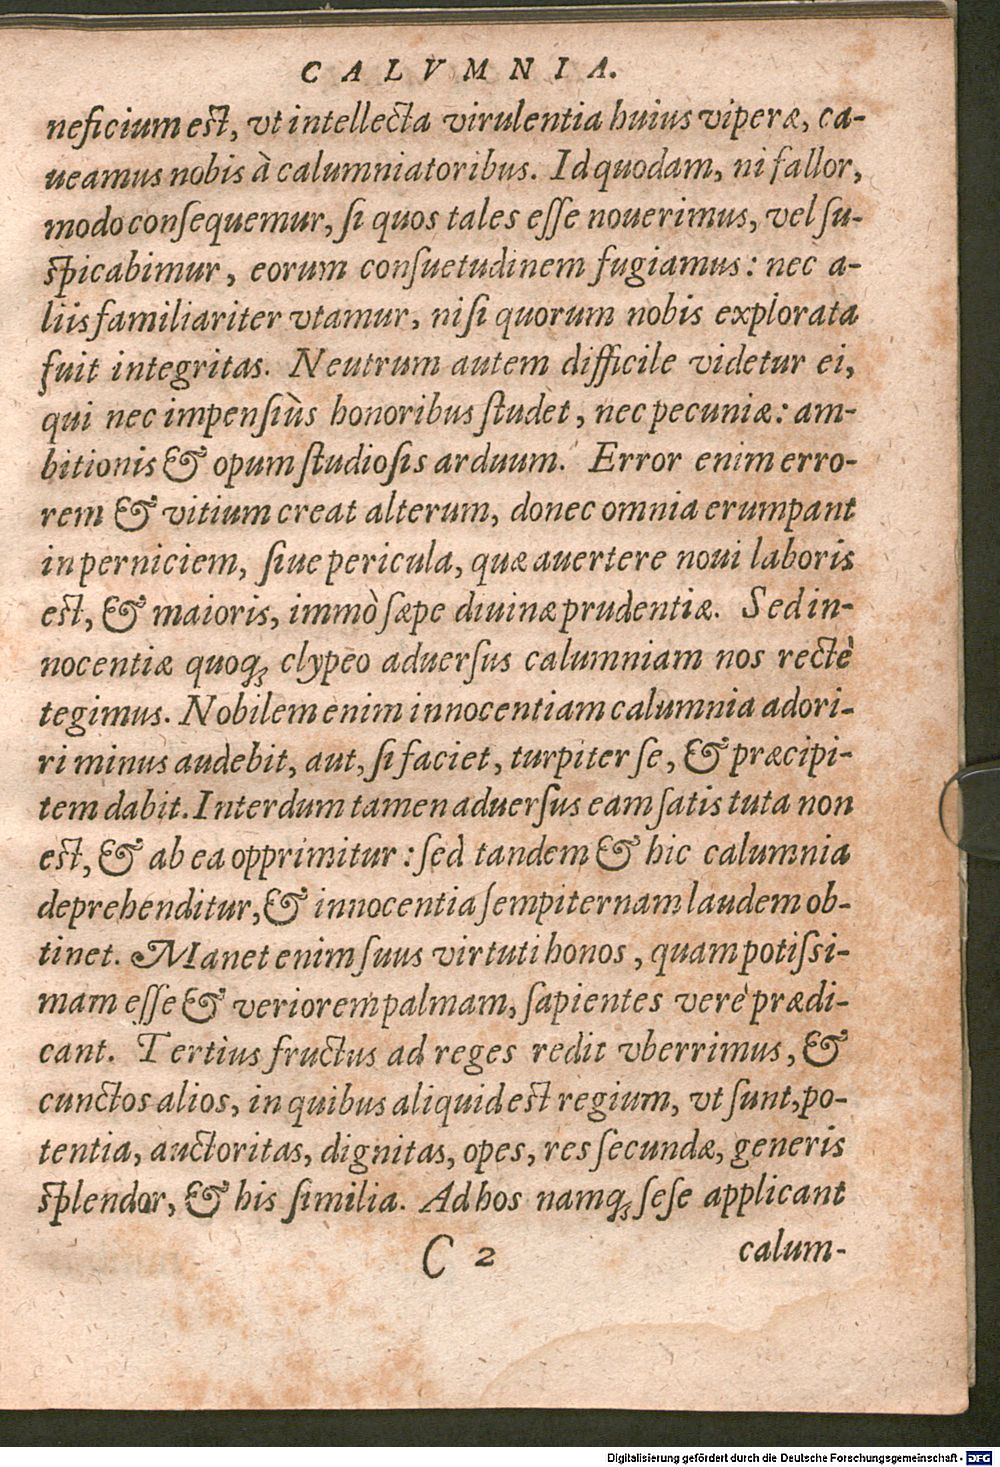 CALVMNIA.
neficium est, vt intellecta virulentia huius viperæ, ca-
ueamus nobis à calumniatoribus. Id quodam, ni fallor,
modo conſequemur, ſi quos tales eſſe nouerimus, vel ſu-
ſpicabimur, eorum conſuetudinem fugiamus: nec a-
liis familiariter vtamur, niſi quorum nobis explorata
fuit integritas. Neutrum autem difficile videtur ei,
qui nec impenſiùs honoribus ſtudet, nec pecuniæ: am-
bitionis & opum ſtudioſis arduum. Error enim erro-
rem & vitium creat alterum, donec omnia erumpant
in perniciem, ſiue pericula, quæ auertere noui laboris
eſt, & maioris, immò ſæpe diuinæ prudentiæ. Sed in-
nocentiæ quoq; clypeo aduerſus calumniam nos rectè
tegimus. Nobilem enim innocentiam calumnia adori-
ri minus audebit, aut, ſi faciet, turpiter ſe, & præcipi-
tem dabit. Interdum tamen aduerſus eam ſatis tuta non
eſt, & ab ea opprimitur: ſed tandem & hic calumnia
deprehenditur, & innocentia ſempiternam laudem ob-
tinet. Manet enim ſuus virtuti honos, quam potiſſi-
mam eſſe & veriorem palmam, ſapientes verè prædi-
cant. Tertius fructus ad reges redit vberrimus, &
cunctos alios, in quibus aliquid eſt regium, vt ſunt, po-
tentia, auctoritas, dignitas, opes, res ſecundæ, generis
ſplendor, & his ſimilia. Ad hos namq; ſeſe applicant
C 2 calum-
Digitalisierung gefördert durch die Deutsche Forschungsgemeinschaft - DFG